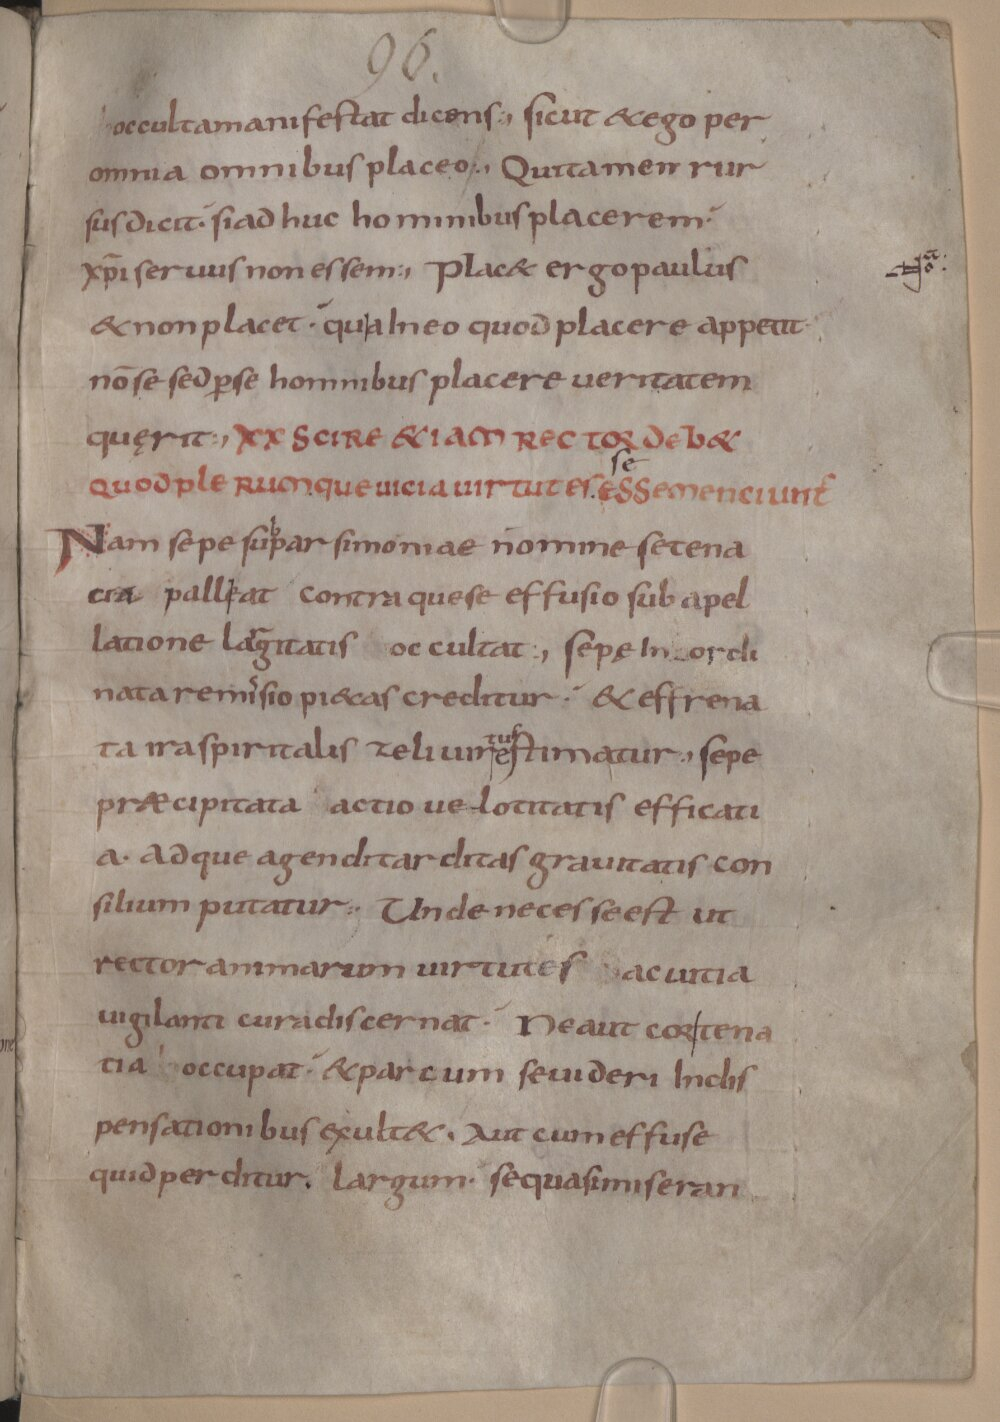 96.
occulta manifestat dicens., sicut & ego per
omnia omnibus placeo., Qui tamen rur
sus dicit. si adhuc hominibus placerem.
xp̄i seruus non essem., Plac& ergo paulus
& non placet. quia In eo quod placere appetit.
nō se sed ꝑ se hominibus placere ueritatem
quęrit., XX SCIRE &IAM RECTOR DEB&
QUOD PLERUMQUE UICIA UIRTUTES se ESSE MENCIUNT
Nam sepe sub parsimoniae nomine se tena
cia palleat contraque se effusio sub apel
latione largitatis occultat., sepę Inordi
nata remissio pi&as creditur. & effrena
ta ira spiritalis zeli uirtus estimatur., sepe
præcipitata actio uelotitatis efficati
a. Adque agendi tarditas grauitatis con
silium putatur. Unde necesse est ut
rector animarum uirtutes ac uitia
uigilanti cura discernat. Ne aut cor tena
tia occupat. & parcum se uideri In dis
pensationibus exult&. Aut cum effuse
quid perditur. largum. se quasi miseran